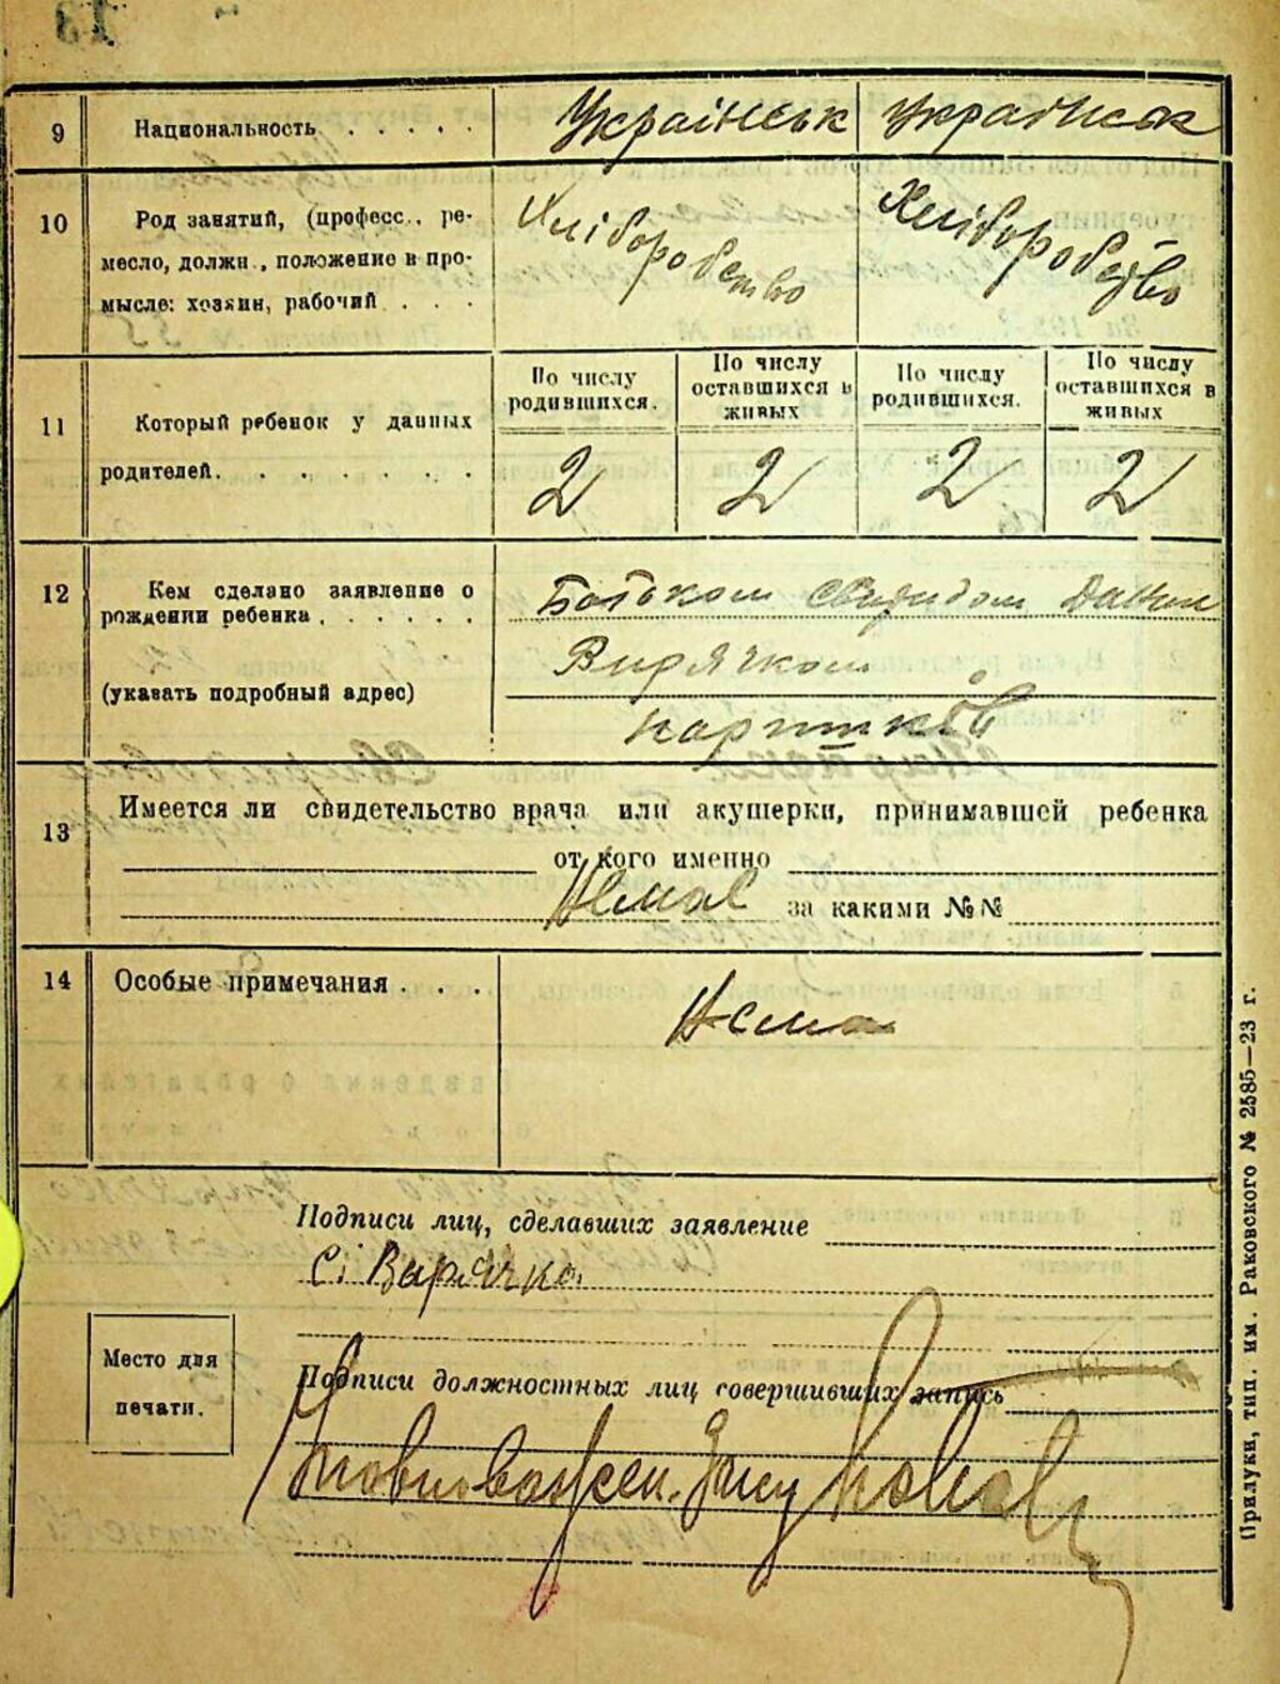 13
9 Национальность . . . . . Українськ Українськ
10 Род занятий, (професс., ре-
месло, должн., положение в про-
мысле: хозяин, рабочий . . .
Хліборобство Хліборобство
11 Который ребенок у данных
родителей. . . . . . .
По числу родившихся. По числу оставшихся в живых По числу родившихся. По числу оставшихся в живых
2 2 2 2
12 Кем сделано заявление о
рождении ребенка . . . . . .
(указать подробный адрес)
Батьком Свиридом
Вирячком
13 Имеется ли свидетельство врача или акушерки, принимавшей ребенка
от кого именно
Немає за какими №№
14 Особые примечания . . . Нема
Подписи лиц, сделавших заявление
С. Вирячко
Место для
печати.
Подписи должностных лиц совершивших запись
Прилуки, тип. им. Раковского № 2585—23 г.